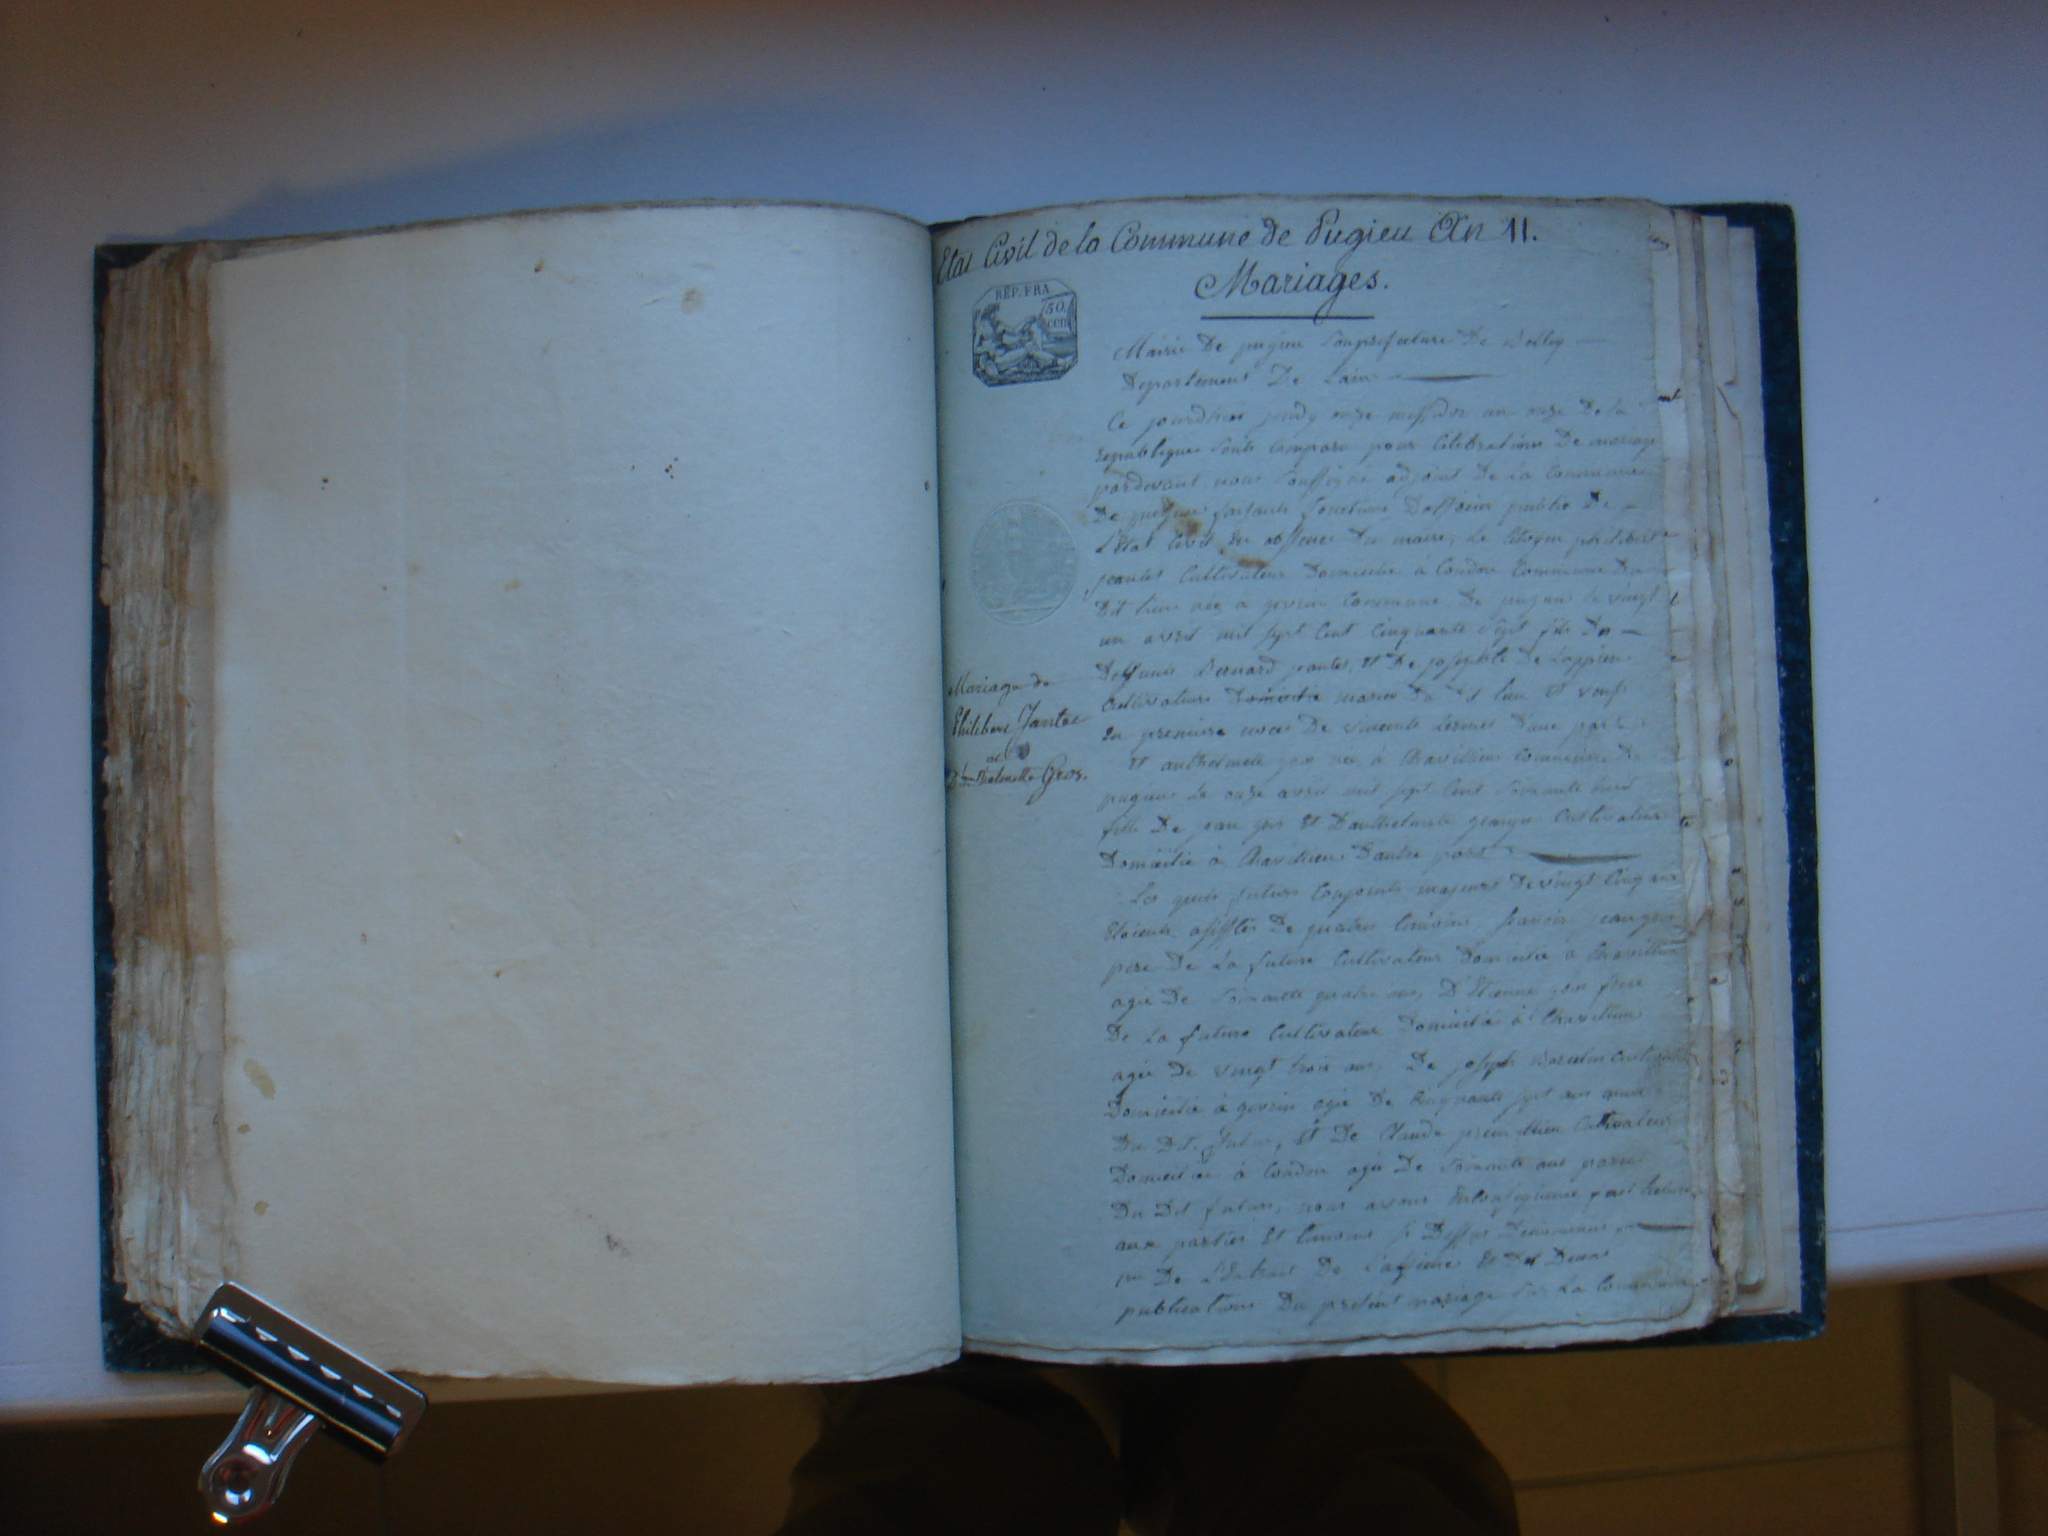 Etat Civil de la Commune de Pugieu An 11.
Mariages.
REP. FRA.
50 cent
Mairie De pugieu Souprefecture De Belley
Departement De Lain
Ce jourdhui jeudy onze messidor an onze De la
Republique Sont comparu pour Célébration De mariage
pardevant nous Soussigné adjoint De La Commune
De pugieu faisant fonctions Dofficier public De
L'Etat Civil En absence Du maire, Le Citoyen philibert
jantet Cultivateur Domicilié à Condon Commune Du
Dit lieu née à govrin Commune De pugieu le vingt
un avril mil sept Cent Cinquante Sept fils De
Deffunts Bernard jantet, Et De josephte De
Cultivateurs Domicilié mariés Du Dit lieu Et veuf
En premiere noces De Dune part
Et anthelmete gros née à Chavillieu Commune De
pugieu Le onze avril mil sept Cent Soixante huit
fille De jean gros Et Danthelmete Cultivateur
Domicilié à Chavillieu Dautre part
Les quels futurs Conjoints majeurs De vingt Cinq ans
Etoients assistés De quatre temoins, jean gros
pere De La future Cultivateur Domicilié à Chavillieu
agée De Soixante quatre ans, D'Etienne gros frere
De La future Cultivateur Domicilié à Chavillieu
agée De vingt trois ans, De joseph Cultivateur
Domicilié à govrin agée De Cinquante Sept ans
Du Dit futur, Et De Claude Cultivateur
Domicilié à Condon agée De Soixante ans
Du Dit futur, nous avons fait lecture
aux parties Et temoins Ci Dessus
De L'Extrait De Et Des Deux
publications Du présent mariage Sur La Commune
Mariage de
Philibert Jantet
et
Gros.